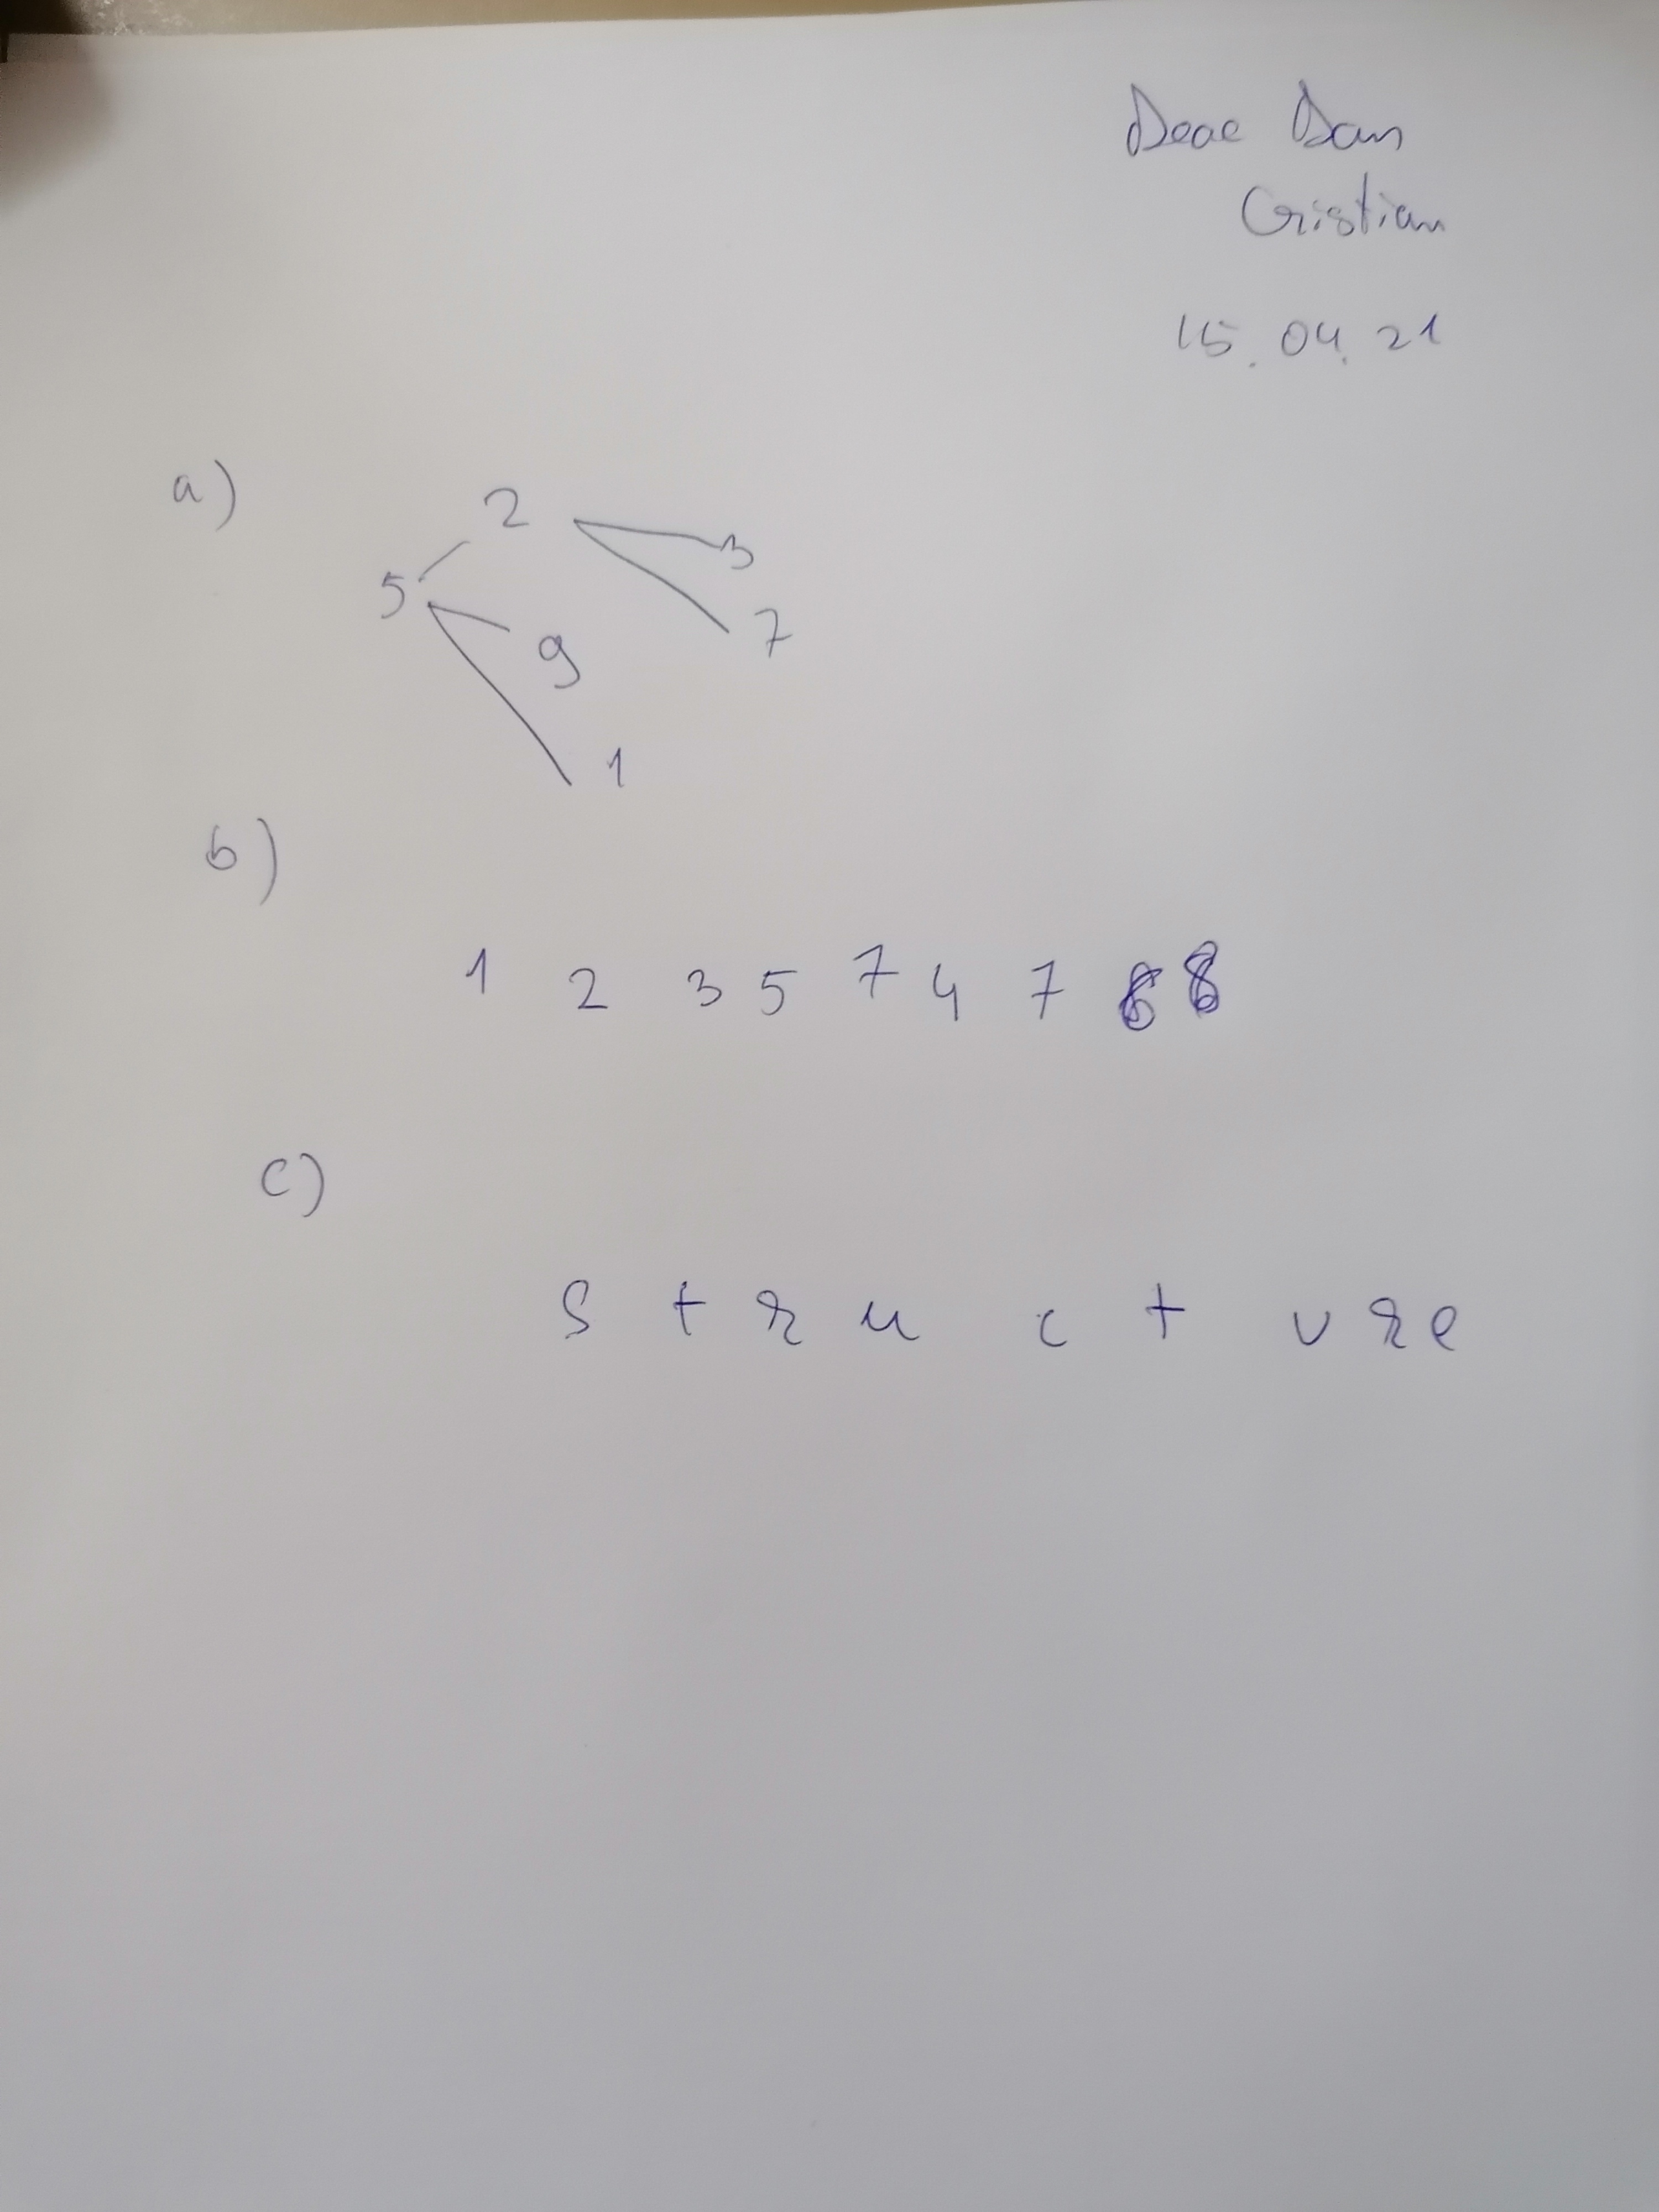 Deac Dan
Cristian
15.04.21
a)
2
3
5
7
9
1
b)
1 2 3 5 7 4 7 6 8
c)
s t r u c t u r e